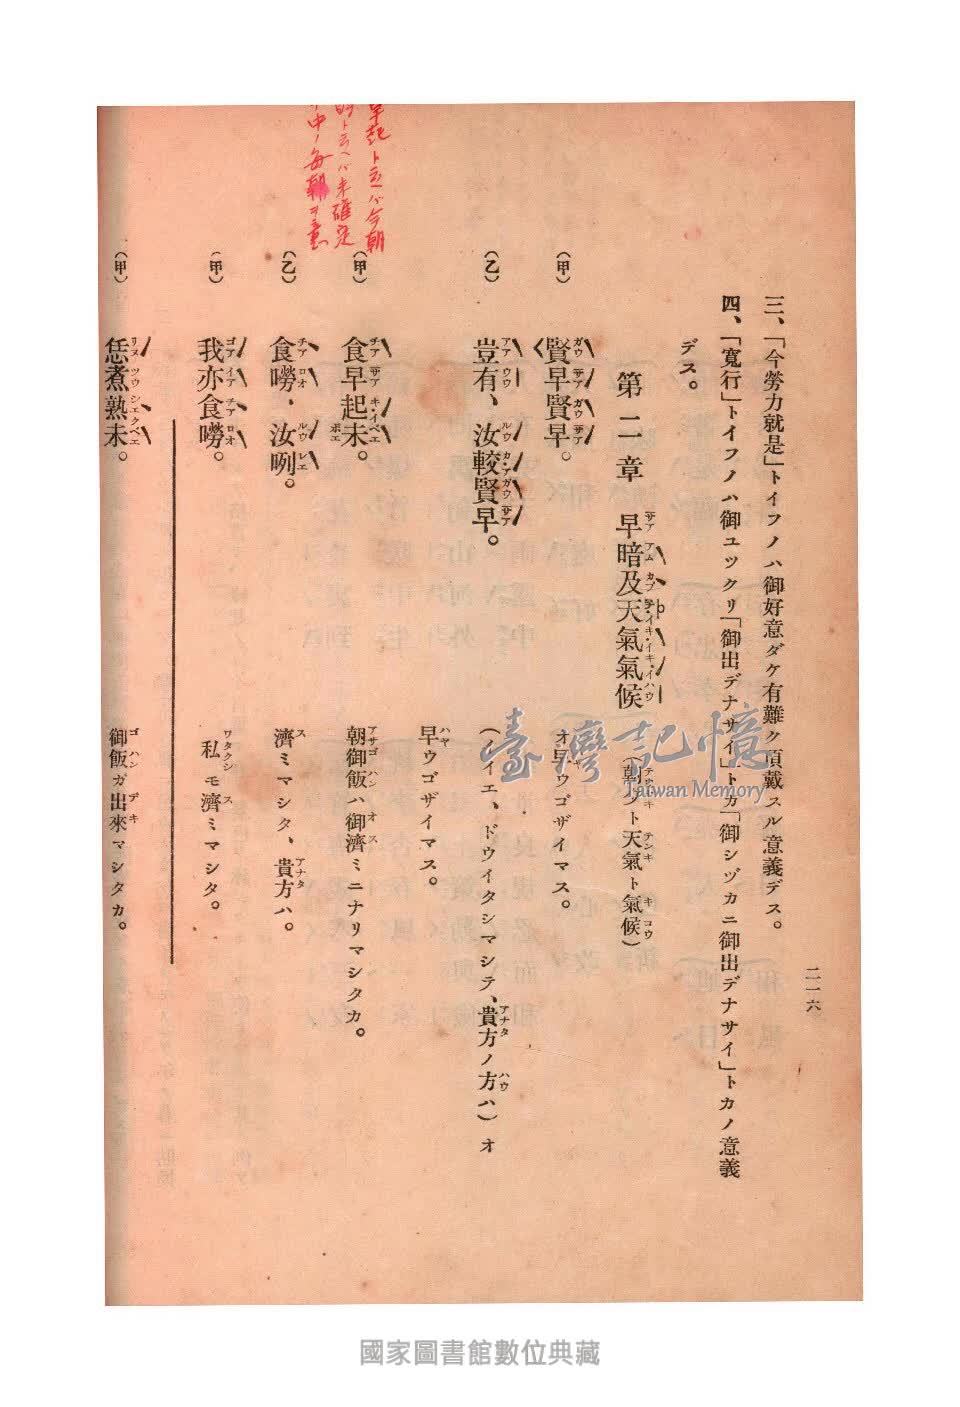 二一六
三、「今勞力就是」トイフノハ御好意ダケ有難ク頂戴スル意義デス。
四、「寬行」トイフノハ御ユックリ「御出デナサイ」トカ「御シヅカニ御出デナサイ」トカノ意義
デス。
第二章 早暗及天氣氣候(朝夕ト天氣ト氣候)
(甲) 賢早賢早。 オ早ウゴザイマス。
(乙) 豈有、汝較賢早。 (イイエ、ドウイタシマシテ、貴方ノ方ハ)オ
早ウゴザイマス。
(甲) 食早起未。 朝御飯ハ御濟ミニナリマシタカ。
(乙) 食嘮、汝咧。 濟ミマシタ、貴方ハ。
(甲) 我亦食嘮。 私モ濟ミマシタ。
(甲) 恁煮熟未。 御飯ガ出來マシタカ。
早起ト云ヘバ今朝
ト云ヘバ未確定
中ノ每朝ヲ意
臺灣記憶
Taiwan Memory
國家圖書館數位典藏